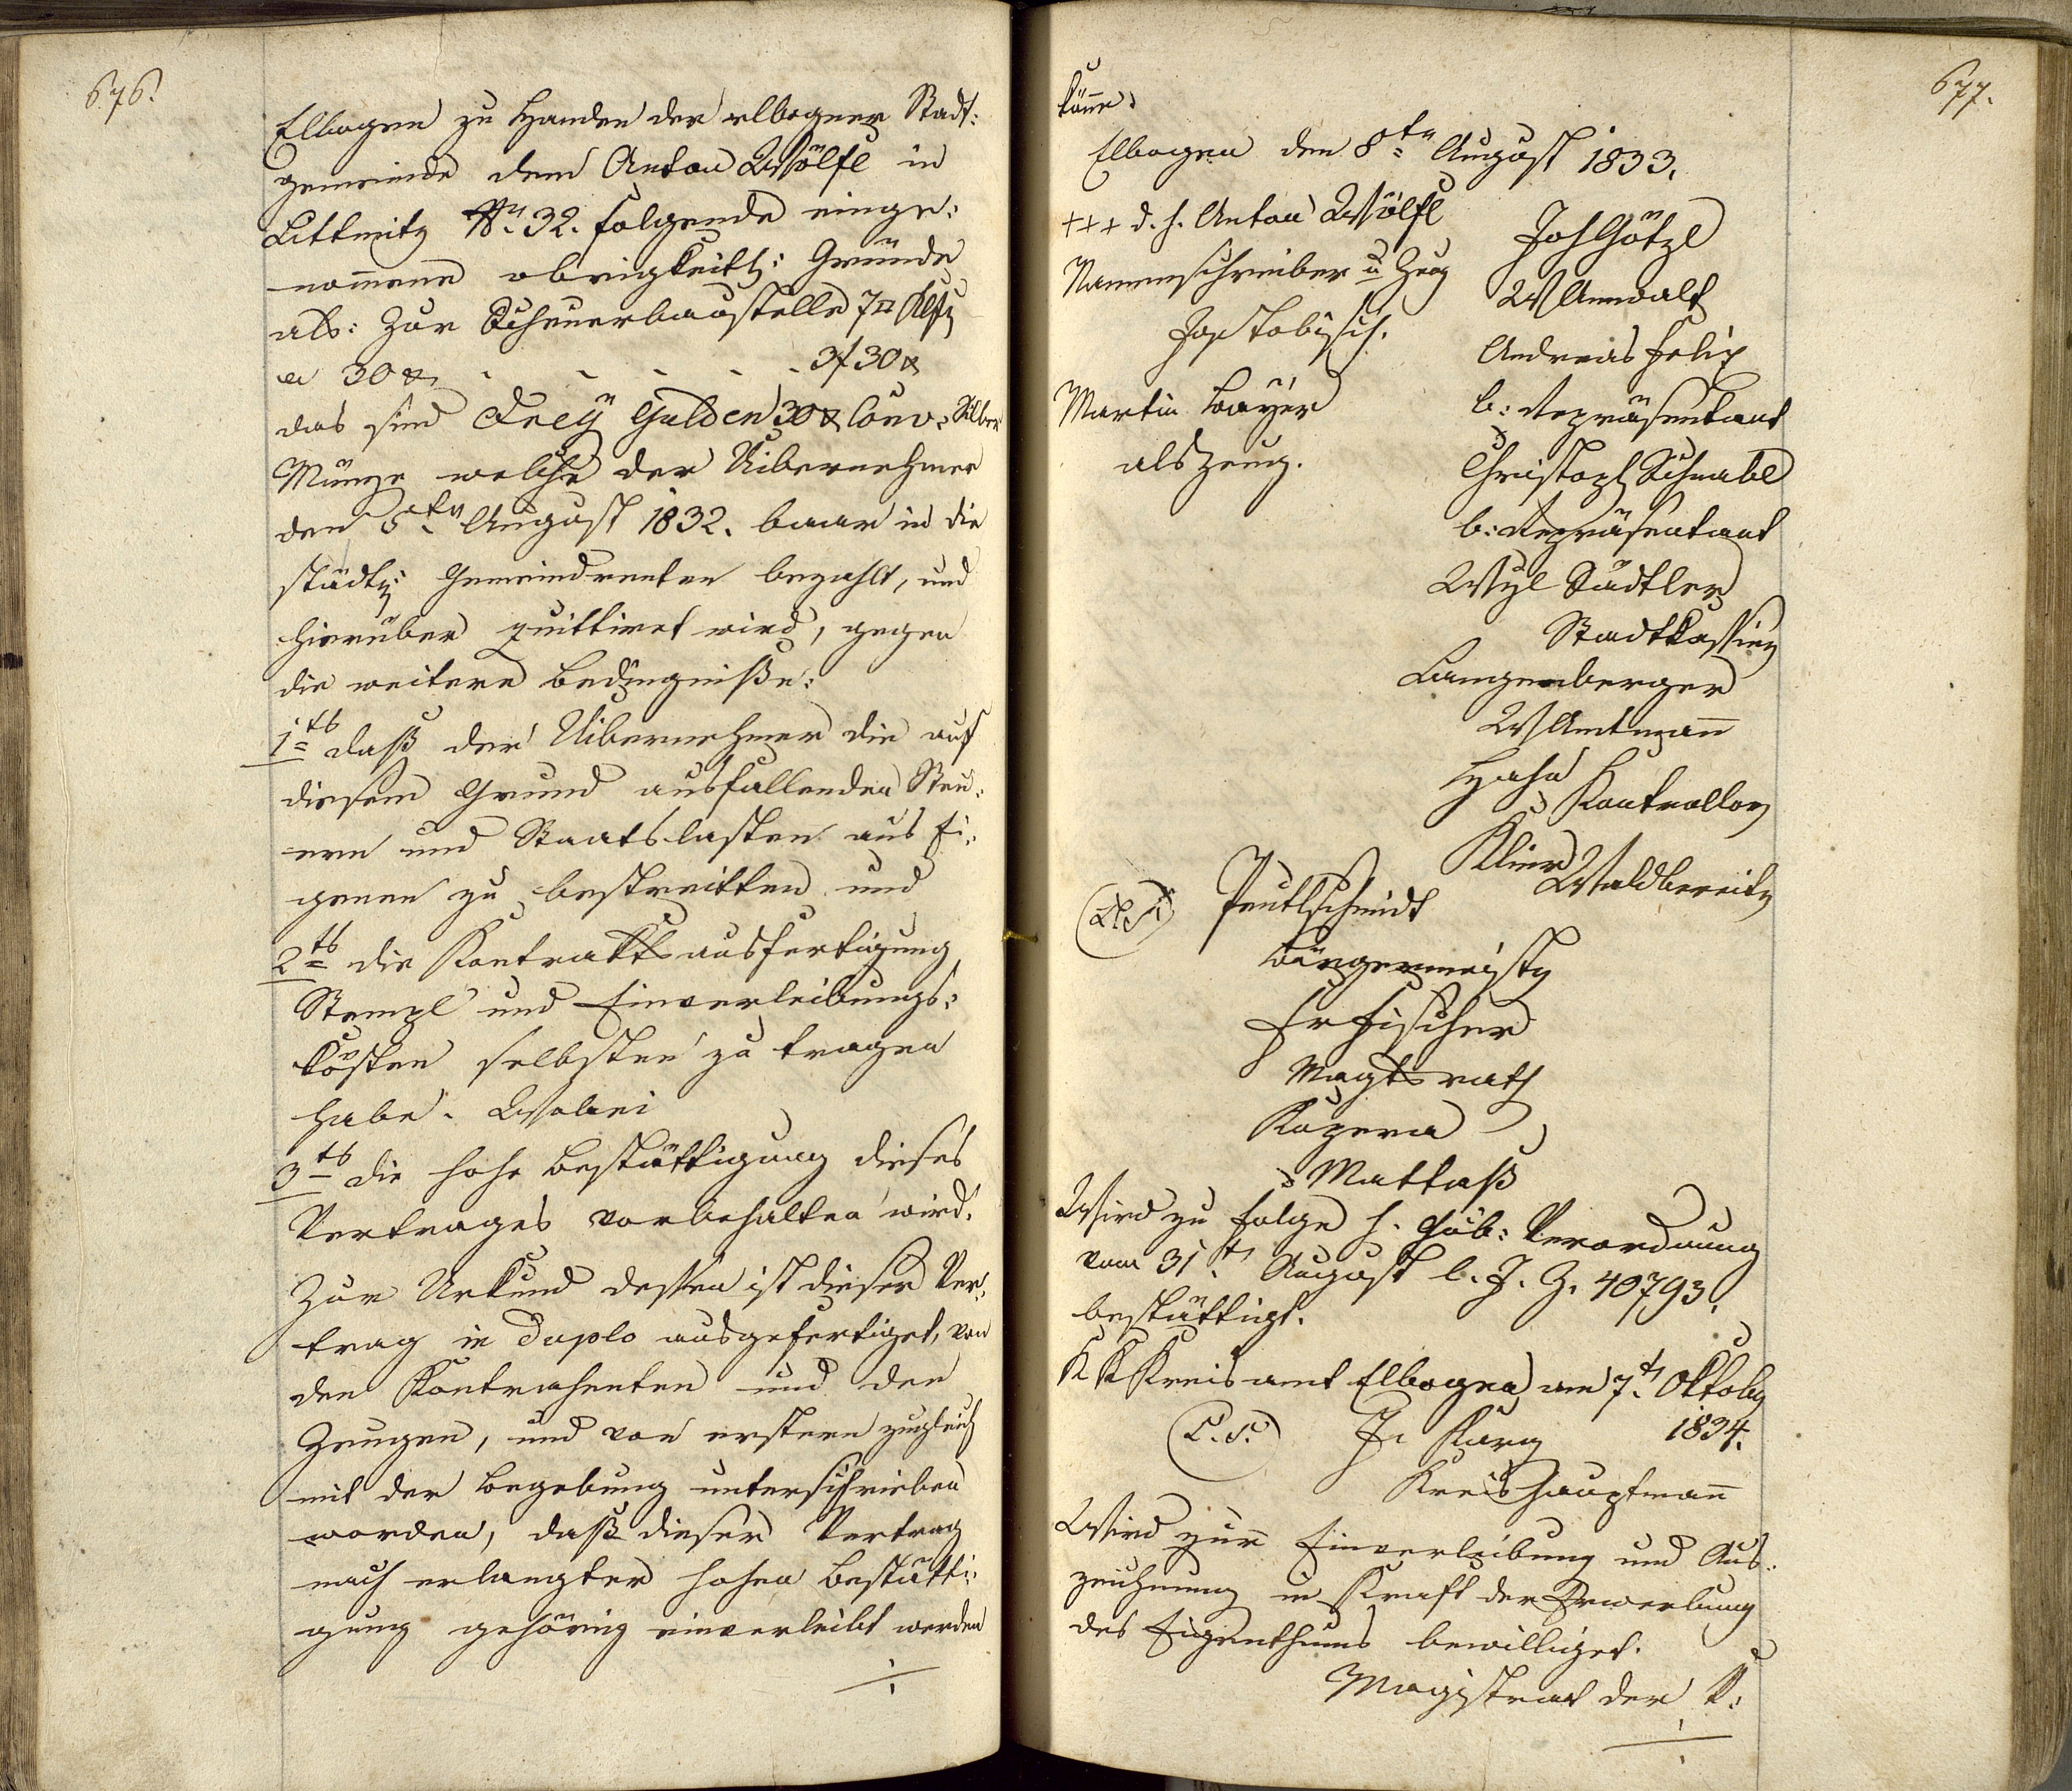 676.
Elbogen zu Handen der elbogner Stadt:
gemeinde dem Anton Wölfl in
Littmitz No. 32. folgende einge:
nom̄ene obrigkeitl: Gründe
als: Zur Scheuerbaustelle 7□ Klft
a 30 x . . . . . 3f 30 x
das sind Drey Gulden 30 x Conv: Silber
Münze welche der Uibernehmer
den 5ten August 1832. baar in die
städt: Gemeindrenten bezahlt, und
hierüber quittiret wird, gegen
die weitere Bedingniße:
1tens daß der Uibernehmer die auf
diesem Grund ausfallenden Steu:
ern und Staatslasten aus Ei:
genen zu bestreitten und
2tens die Kontraktsausfertigung
Stempl und Einverleibungs:
kösten selbsten zu tragen
habe. Wobei
3tens die hohe Bestättigung dieses
Vertrages vorbehalten wird.
Zur Urkund dessen ist dieser Ver:
trag in Duplo ausgefertiget, von
den Kontrahenten und den
Zeugen, und von erstern zugleich
mit der Begebung unterschrieben
worden, daß dieser Vertrag
nach erlangter hohen Bestätti:
gung gehörig einverleibt werden
./.
677.
könne.
Elbogen den 8ten August 1833.
+++ d. h. Anton Wölfl
Namenschreiber u Zeug
Jos Tobisch.
Martin Bayer
als Zeug.
Joh Götzl
W Anwalt
Andreas Felix
b: Repräsentant
Christoph Schnabl
b: Repräsentant
Sadtler
Stadtkassier
Langenberger
W Amtman̄
Hahn
Kontrollor
Klier
Waldbereiter
(L.S.) Peutlschmidt
Bürgermeister
Fr Fischer
Magtsrath
Kozera
Mattasß
Wird zu Folge h. Gub: Verordnung
vom 31t August l. J. Z. 40793.
bestättigt.
K K Kreisamt Elbogen am 7t Oktober
1834.
(L.S.)
Kreishauptman̄
Wird zur Einverleibung und Aus:
zeichnung in Kraft der Erwerbung
des Eigenthums bewilliget.
Magistrat der K:
./.